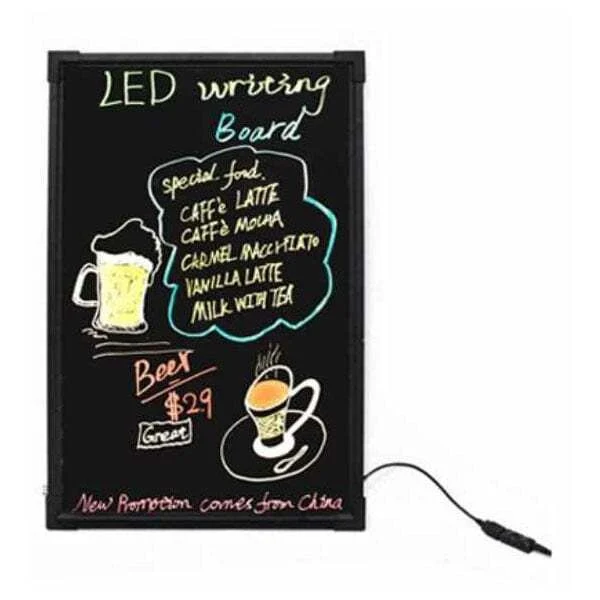 LED writing
Board
special food.
CAFF'e LATTE
CAFFÈ MOCHA
CARMEL MACCHIATO
VANILLA LATTE
MILK WITH TEA
Beer
$29
Great
New Promotion comes from China